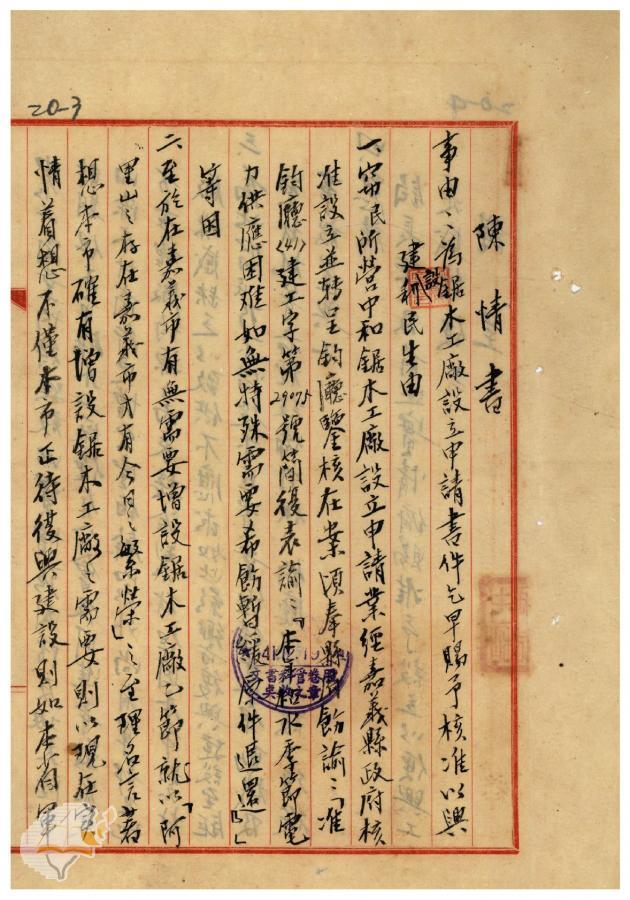 20-3
陳情書
事由：為鋸木工廠設立申請書件乞早賜予核准以興
建設利民生由
一、窃民所營中和鋸木工廠設立申請業經嘉義縣政府核
准設立並轉呈鈞廳鑒核在案頃奉縣府飭諭：「准
鈞廳(41)建工字第29075號簡復表諭：『本省枯水季節電
力供應困难如無特殊需要希飭暫緩原件退還』」
等因
二、至於在嘉義市有無需要增設鋸木工廠乙節就以「阿
里山之存在嘉義市才有今日之繁榮」之至理名言着
想本市確有增設鋸木工廠之需要則以現在實
情着想不僅本市正待復興建設則如本省軍